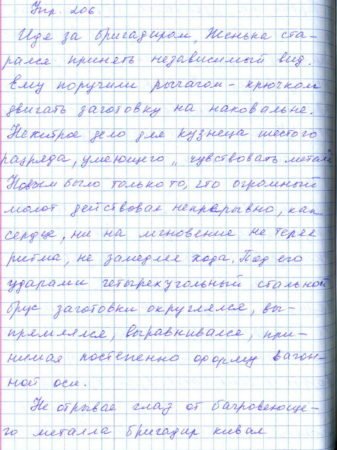 Упр. 206.
Идя за бригадиром, Женька ста-
рался принять независимый вид.
Ему поручили рычагом - крючком
двигать заготовку на наковальне.
Нехитрое дело для кузнеца шестого
разряда, умеющего „чувствовать металл
Новым было только то, что огромный
молот действовал непрерывно, как
сердце, ни на мгновение не теряя
ритма, не замедляя хода. Под его
ударами четырехугольный стальной
брус заготовки округлялся, вы-
прямлялся, выравнивался, при-
нимая постепенно форму вагон-
ной оси.
Не отрывая глаз от багровеюще-
го металла бригадир кивал